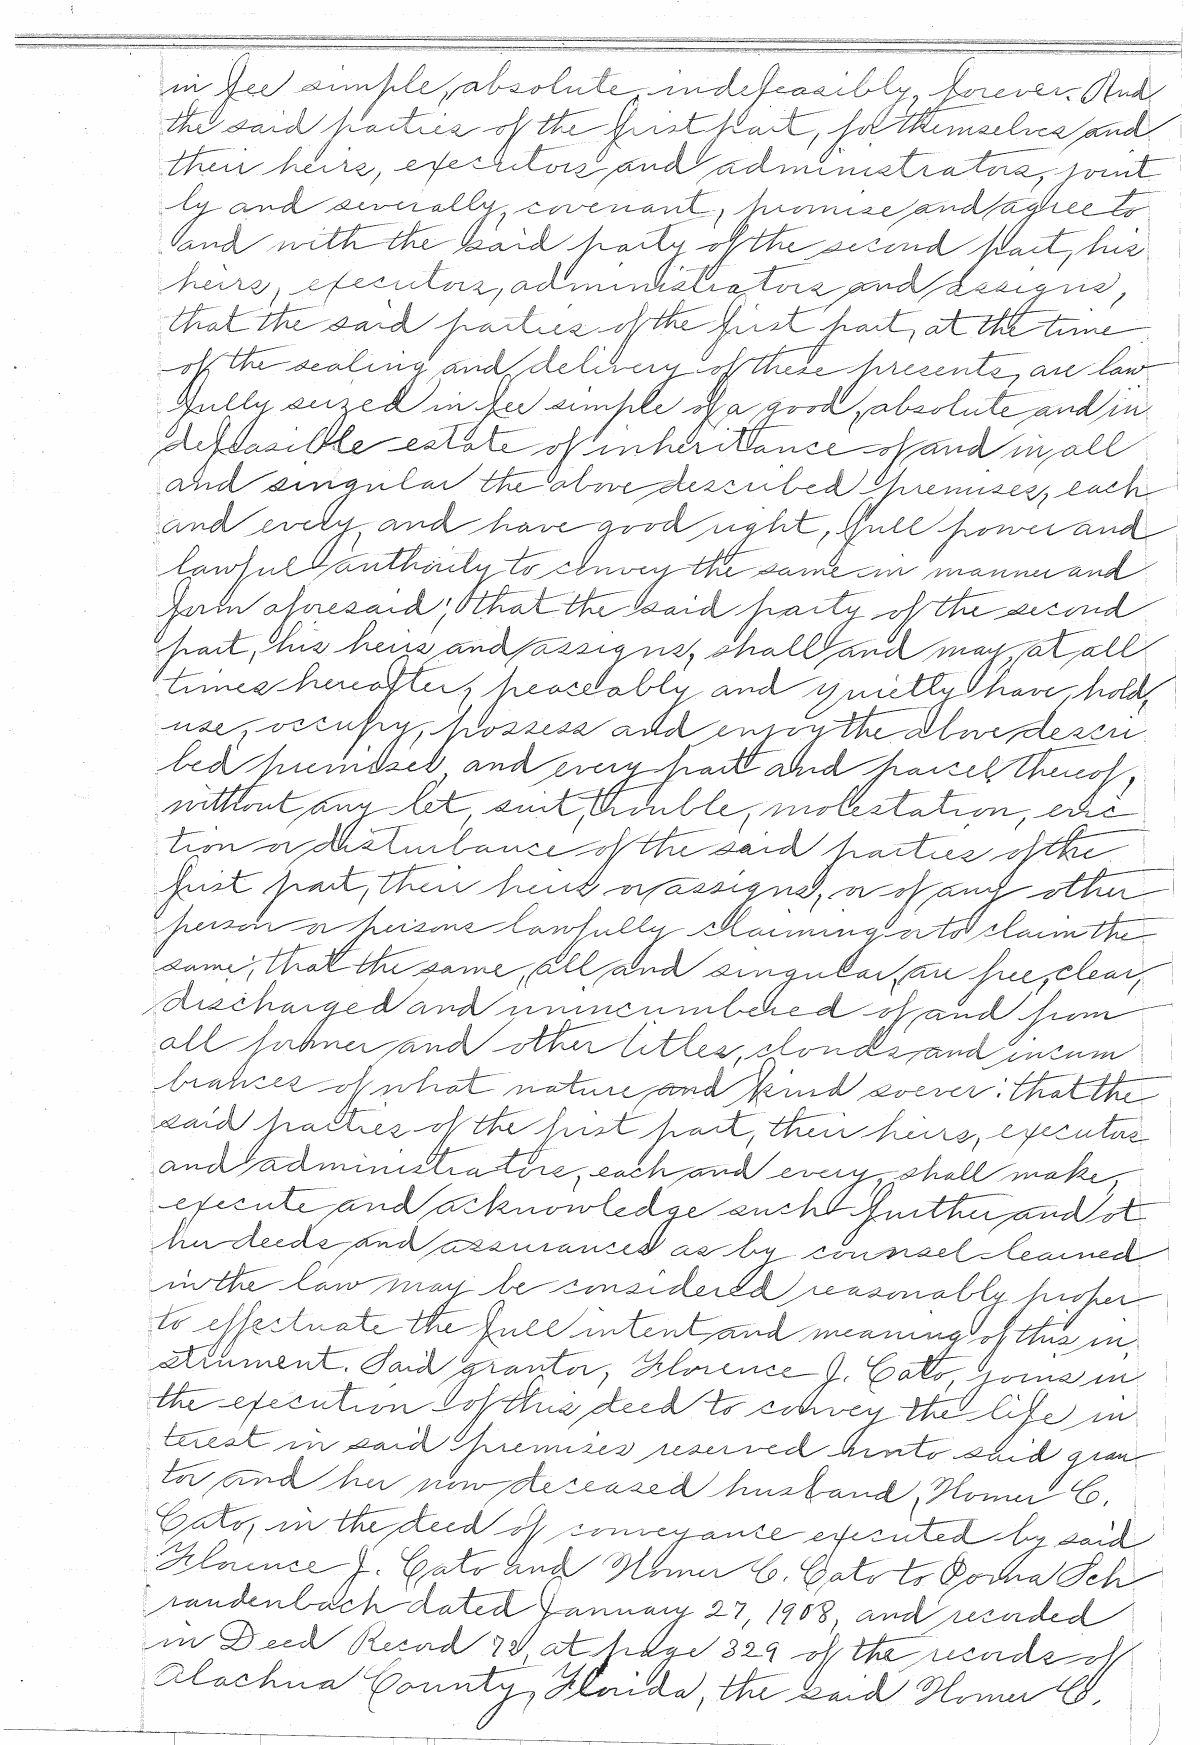 in fee simple, absolute, indefeasibly, forever. And
the said parties of the first part, for themselves and
their heirs, executors and administrators, joint
ly and severally, covenant, promise and agree to
and with the said party of the second part, his
heirs, executors, administrators and assigns,
that the said parties of the first part, at the time
of the sealing and delivery of these presents, are law
fully seized in fee simple of a good, absolute and in
defeasible estate of inheritance of and in all
and singular the above described premises, each
and every, and have good right, full power and
lawful authority to convey the same in manner and
form aforesaid; that the said party of the second
part, his heirs and assigns, shall and may, at all
times hereafter, peaceably and quietly have, hold,
use, occupy, possess and enjoy the above descri
bed premises, and every part and parcel thereof,
without any let, suit, trouble, molestation, evic
tion or disturbance of the said parties of the
first part, their heirs or assigns, or of any other
person or persons lawfully claiming or to claim the
same; that the same, all and singular, are free, clear,
discharged and unincumbered of and from
all former and other titles, clouds and incum
brances of what nature and kind soever: that the
said parties of the first part, their heirs, executors
and administrators, each and every, shall make,
execute and acknowledge such further and ot
her deeds and assurances as by counsel learned
in the law may be considered reasonably proper
to effectuate the full intent and meaning of this in
strument. Said grantor, Florence J. Cato, joins in
the execution of this deed to convey the life in
terest in said premises reserved unto said gran
tor and her now deceased husband, Homer C.
Cato, in the deed of conveyance executed by said
Florence J. Cato and Homer C. Cato to Sch
raudenbach dated January 27, 1908, and recorded
in Deed Record 72, at page 329 of the records of
Alachua County, Florida, the said Homer C.